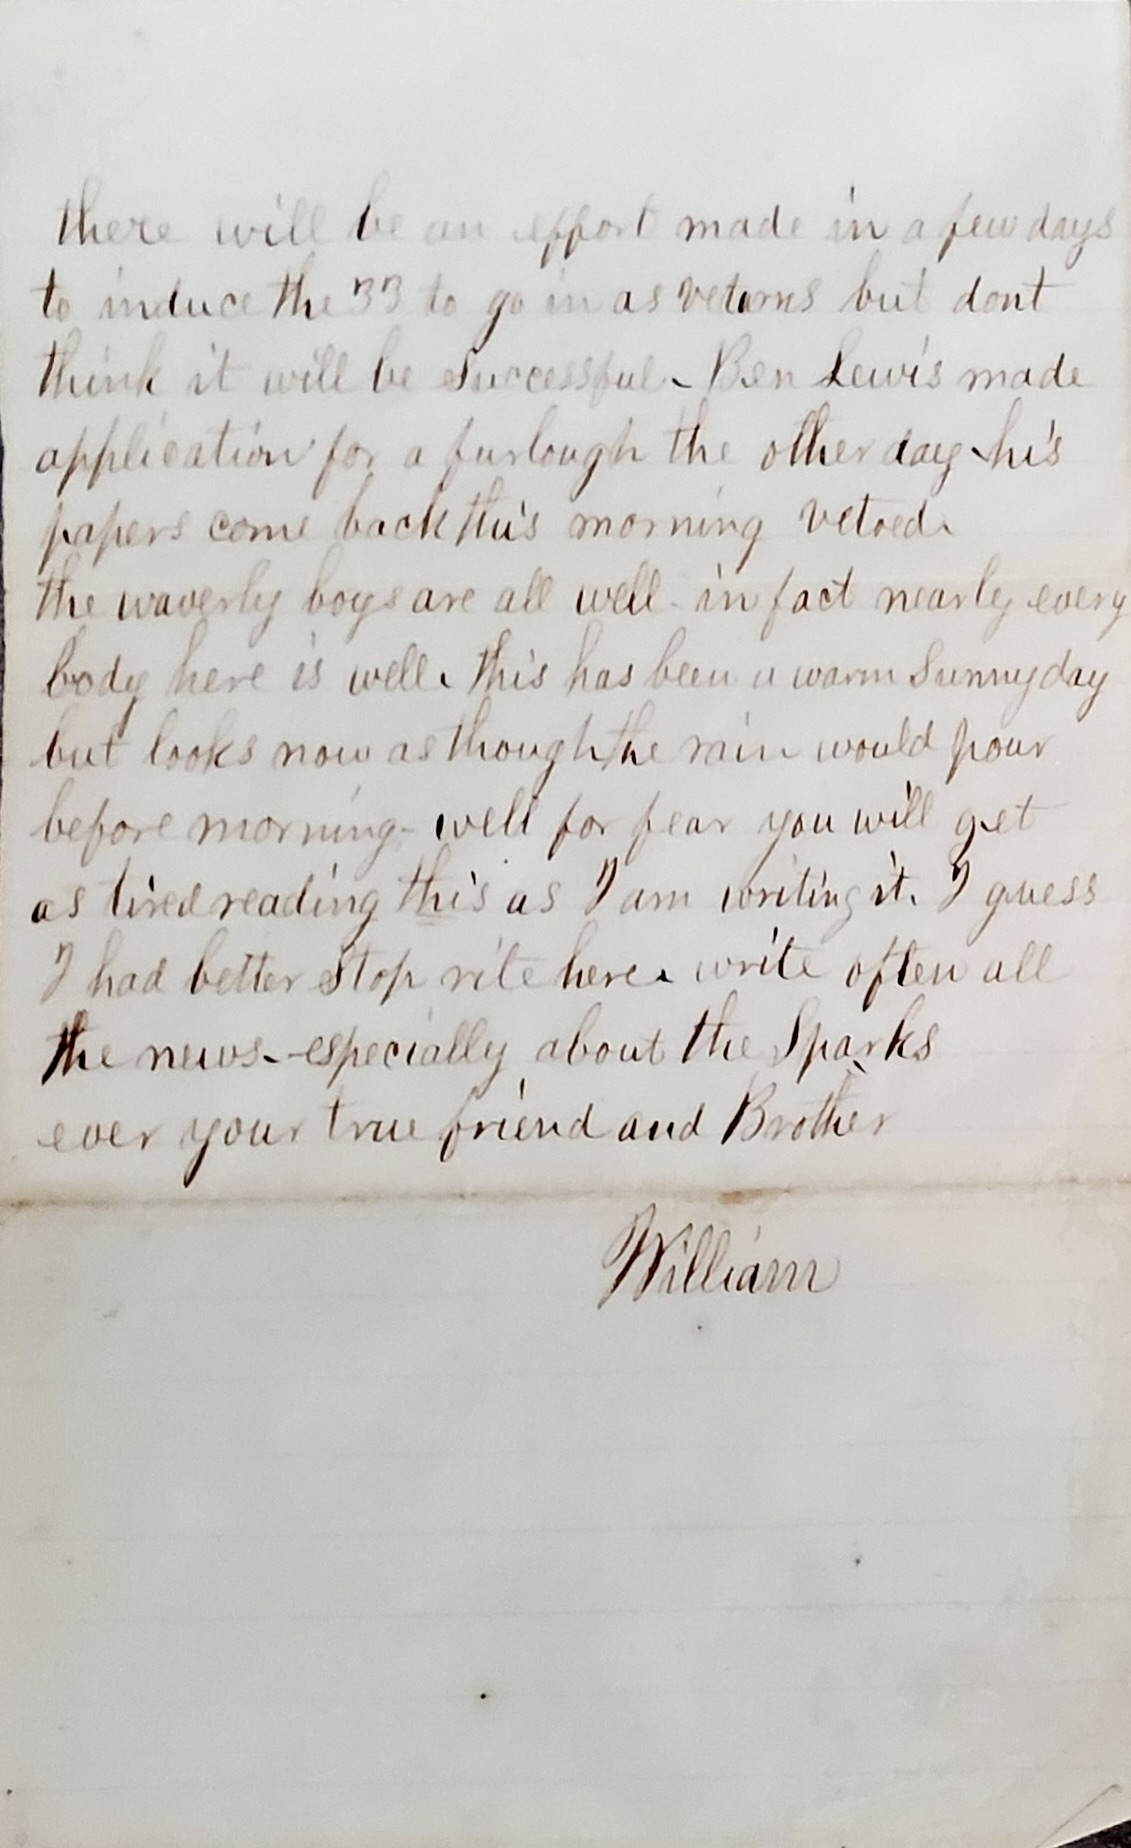 there will be an effort made in a few days
to induce the 33 to go in as veterns but dont
think it will be successful - Ben Lewis made
application for a furlough the other day - his
papers come back this morning vetoed.
the waverly boys are all well - in fact nearly every
body here is well. this has been a warm Sunny day
but looks now as though the rain would pour
before morning - well for fear you will get
as tired reading this as I am writing it. I guess
I had better stop rite here. write often all
the news - especially about the Sparks
ever your true friend and Brother
William